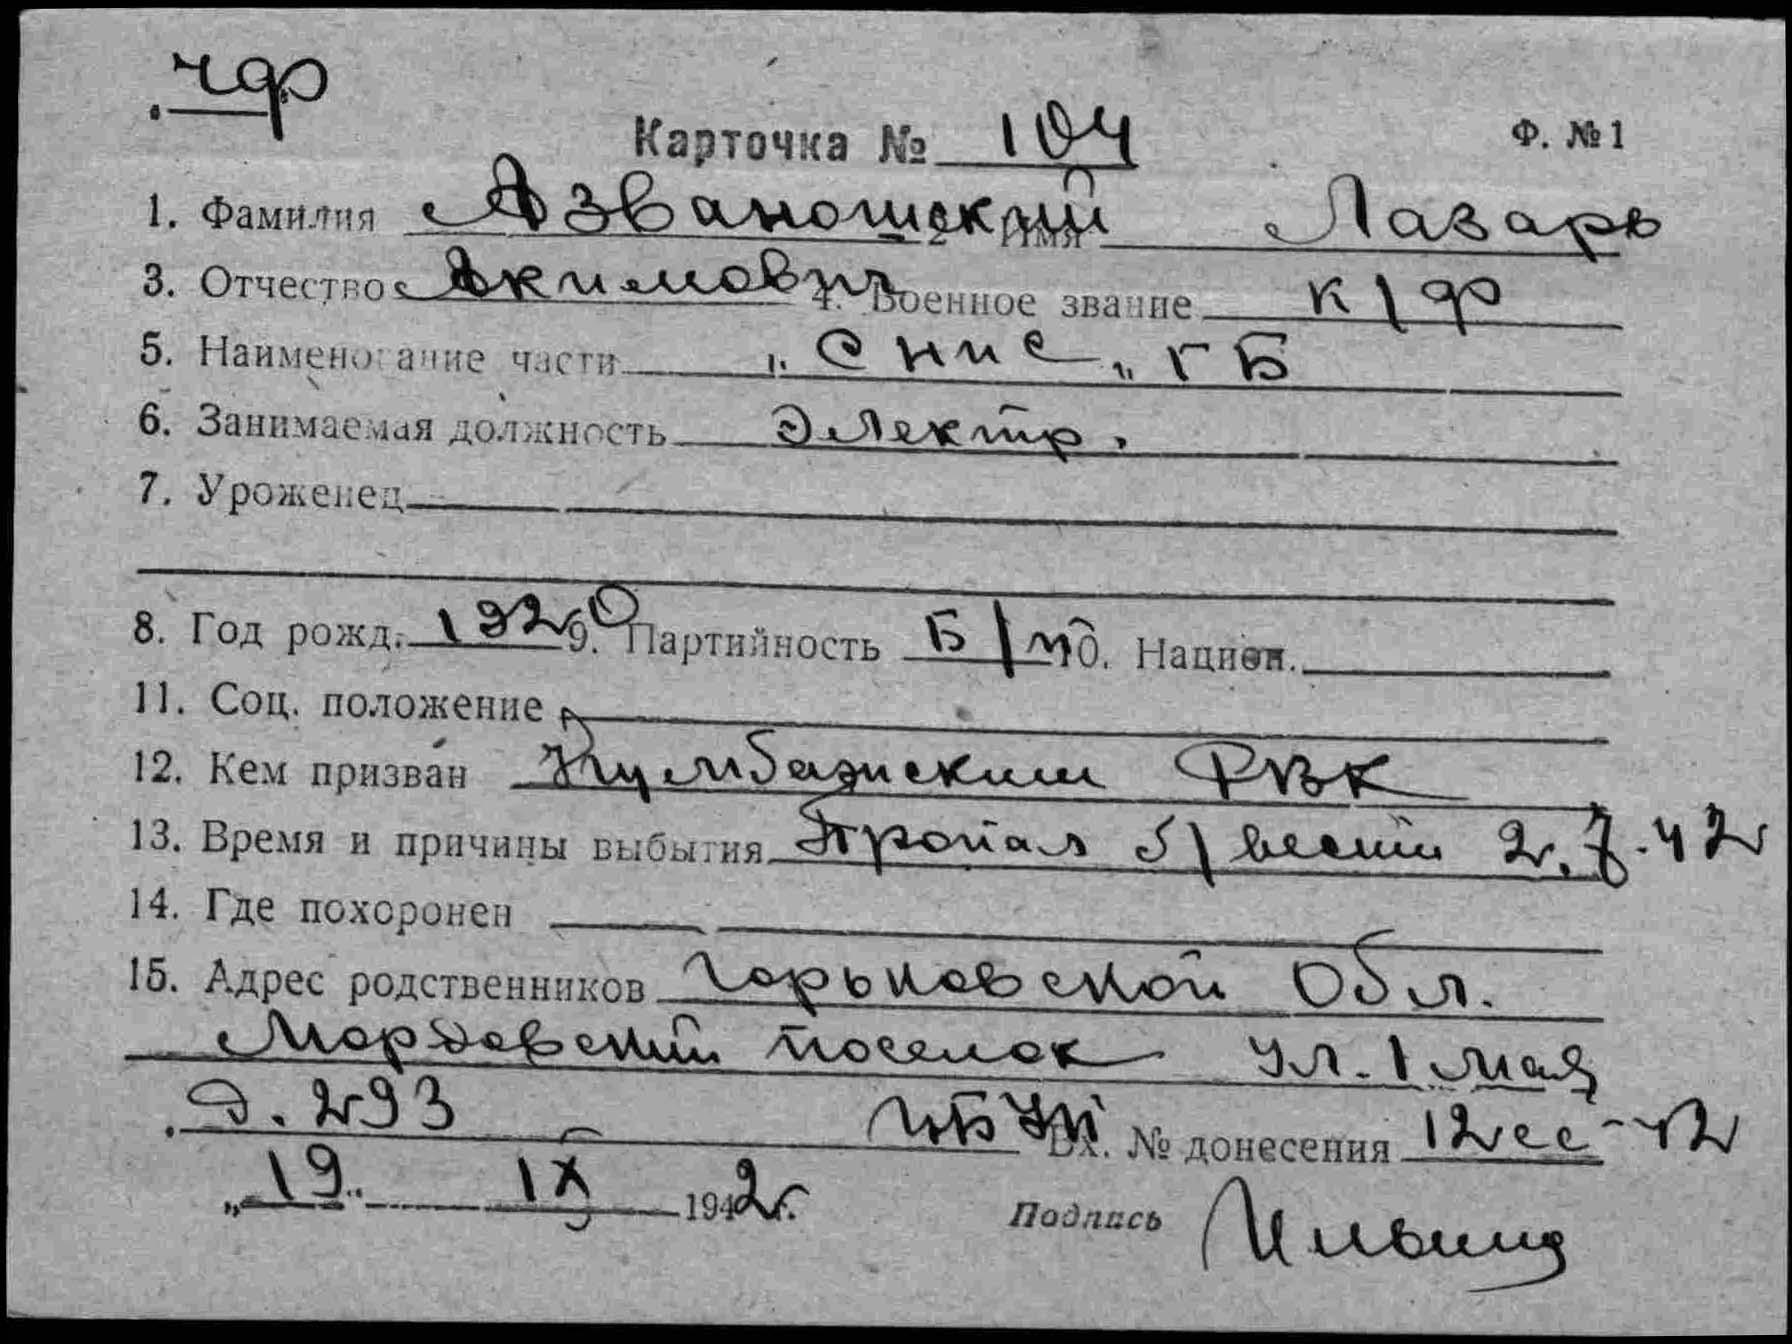 чф
Карточка № 104 Ф. № 1
1. Фамилия Азваношский 2. Имя Лазарь
3. Отчество Акимович 4. Военное звание к/ф
5. Наименование части „Снис„ ГБ
6. Занимаемая должность Электр.
7. Уроженец
8. Год рожд. 1920 9. Партийность Б/п 10. Национ.
11. Соц. положение
12. Кем призван РВК
13. Время и причины выбытия Пропал б/вести 2.7.42
14. Где похоронен
15. Адрес родственников Горьковской Обл.
Мордовский поселок ул. 1 мая
д. 293 Вх. № донесения 12сс-42
„19„ IX 1942г.
Подпись